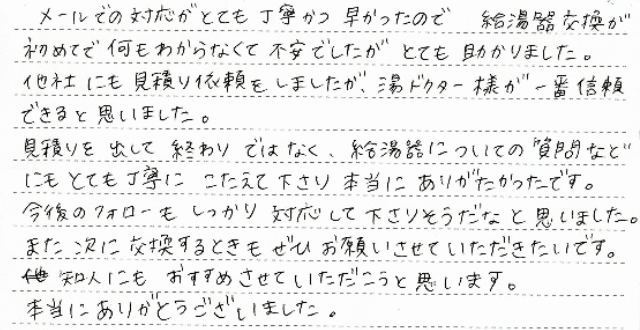 メールでの対応がとても丁寧かつ早かったので 給湯器交換が
初めてで何もわからなくて不安でしたがとても助かりました。
他社にも見積り依頼をしましたが、湯ドクター様が一番信頼
できると思いました。
見積りを出して終わりではなく、給湯器についての質問など
にもとても丁寧にこたえて下さり本当にありがたかったです。
今後のフォローもしっかり対応して下さりそうだなと思いました。
また次に交換するときもぜひお願いさせていただきたいです。
知人にもおすすめさせていただこうと思います。
本当にありがとうございました。